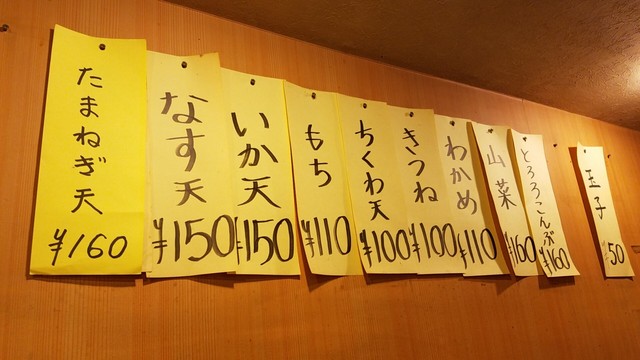 たまねぎ天
¥160
なす天
¥150
いか天
¥150
もち
¥110
ちくわ天
¥100
きつね
¥100
わかめ
¥110
山菜
¥160
とろろこんぶ
¥160
玉子
¥50